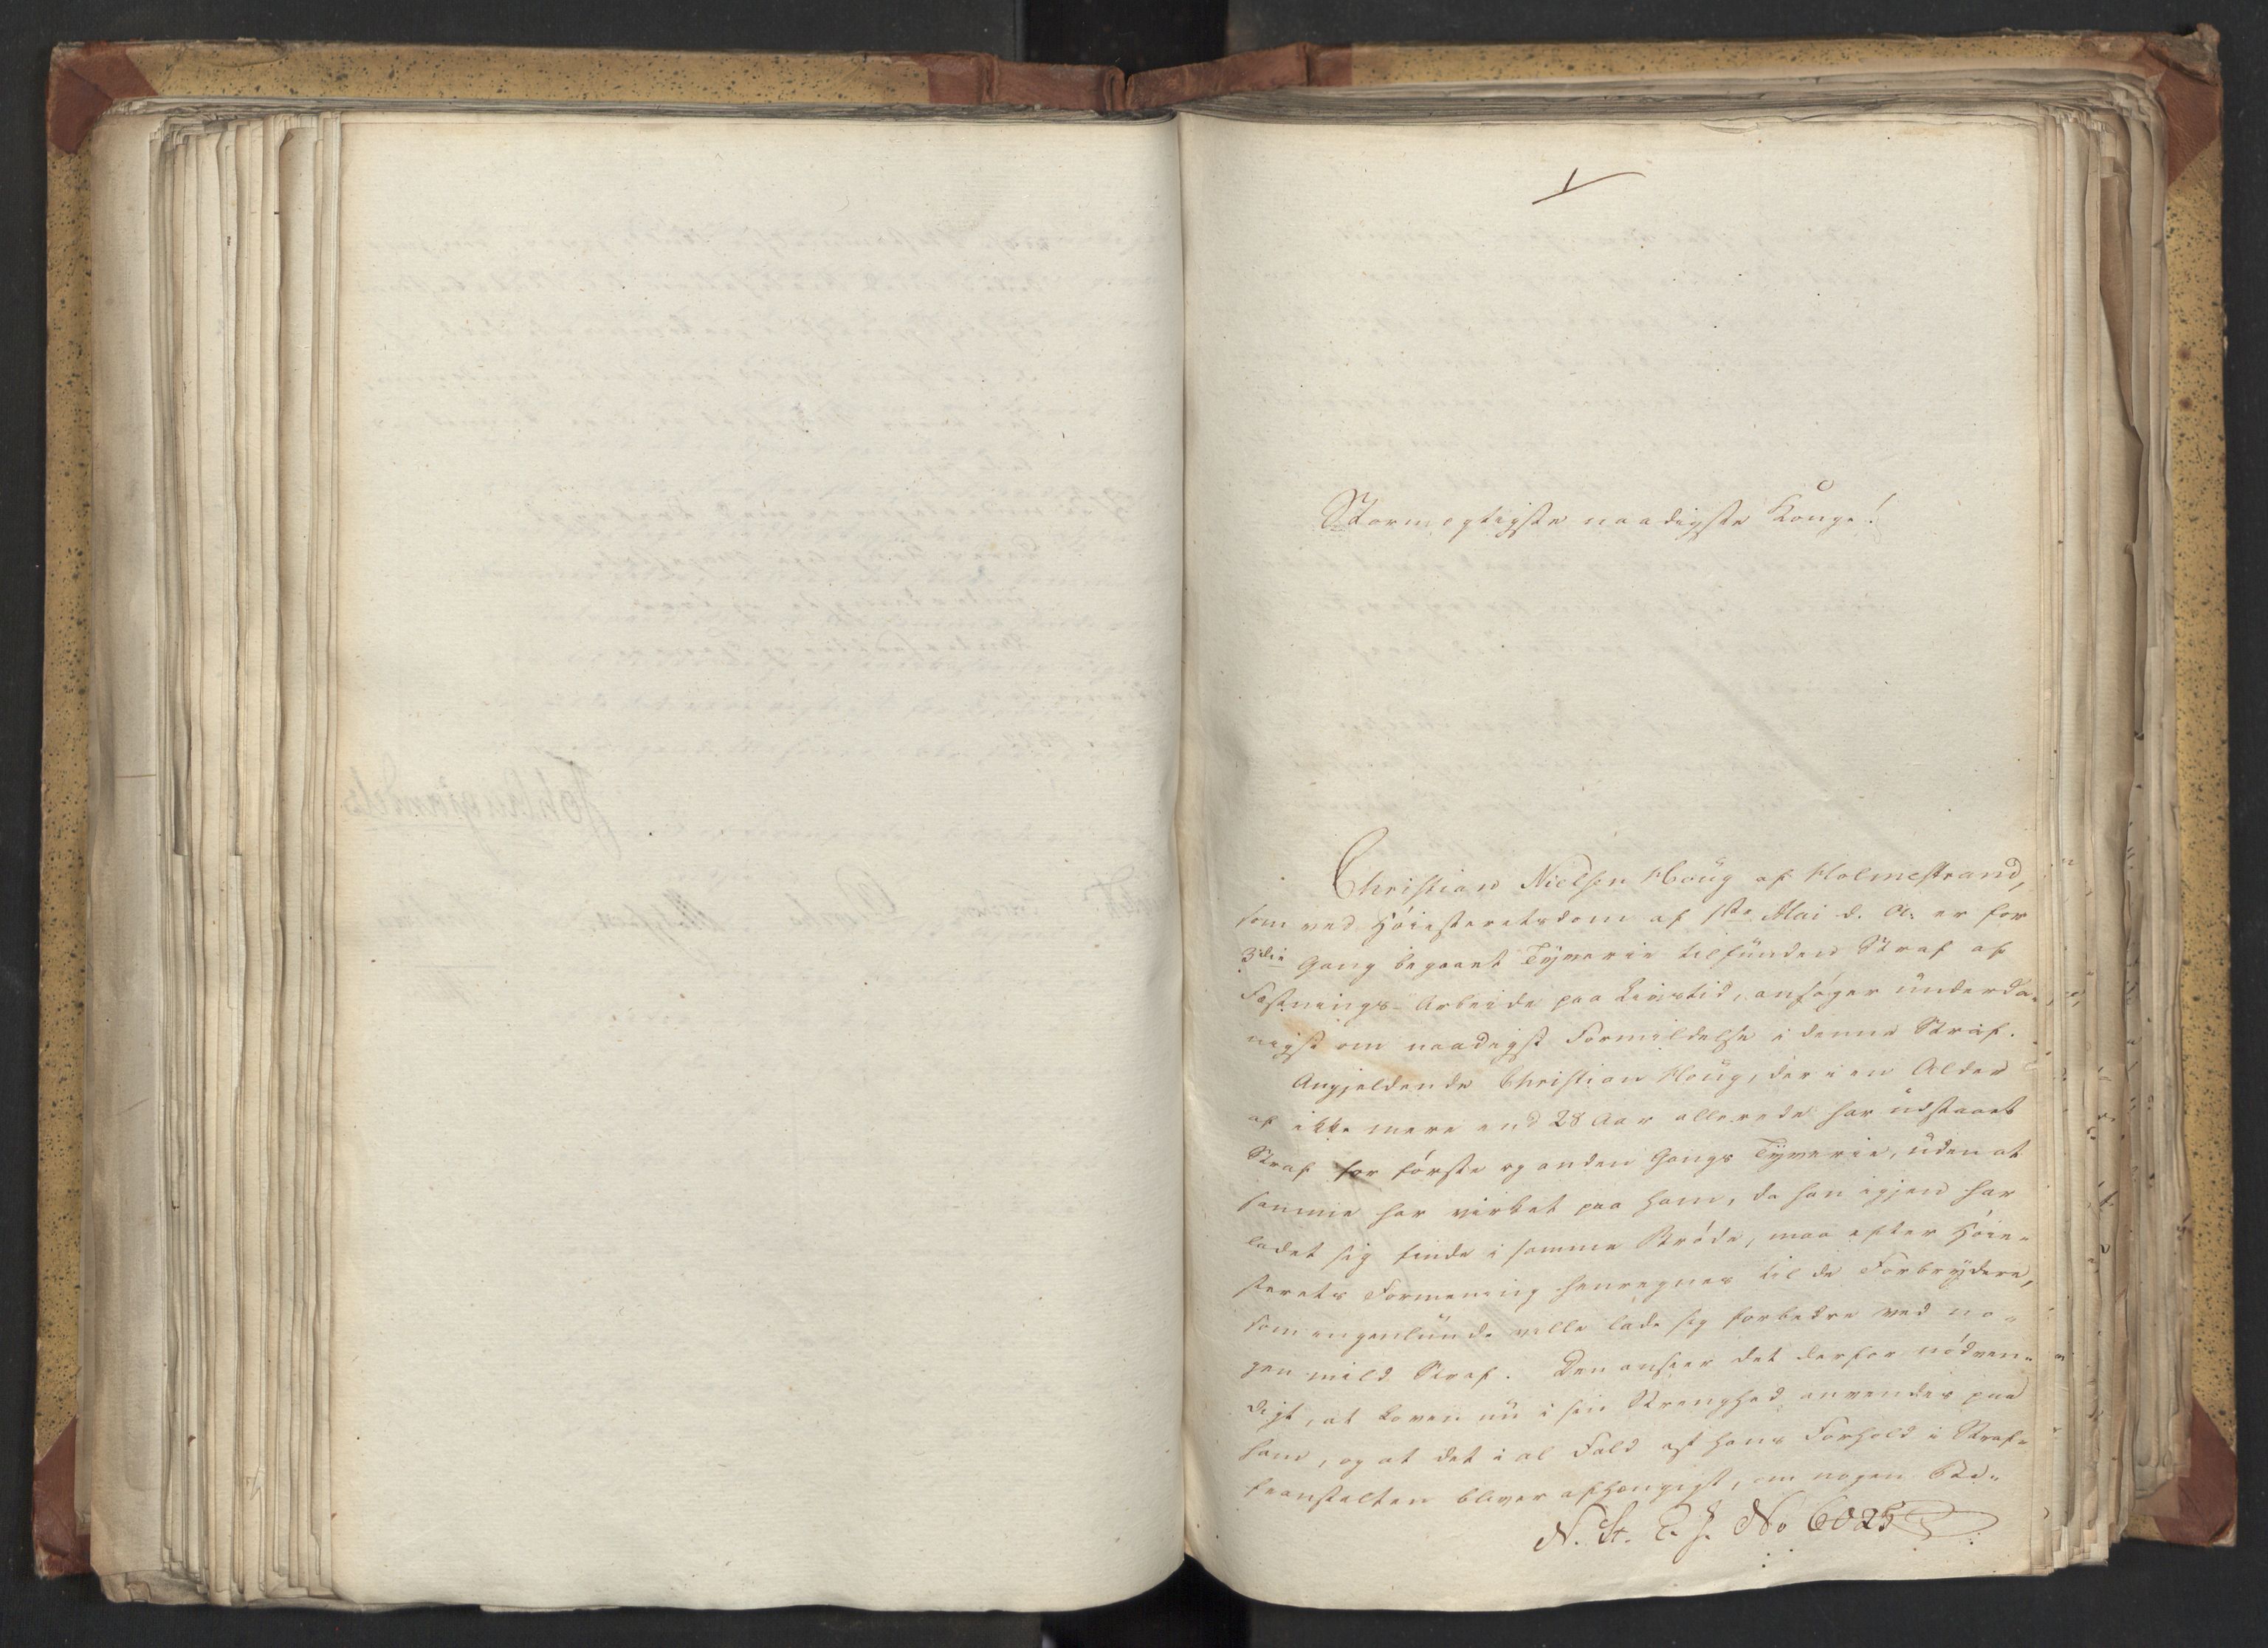 Stormægtigste naadigste Konge!
Christian Nielsen Houg af Holmestrand,
som ved Høiesteretsdom af 1ste Mai d. A. er for
3die Gang begaaet Tyverie tilfunden Straf af
Fæstnings-Arbeide paa Livstid, ansøger underda-
nigst om naadigst Formildelse i denne Straf.
Angjeldende Christian Houg, der i en Alder
af ikke mere end 28 Aar allerede har udstaaet
Straf for første og anden Gangs Tyverie, uden at
samme har virket paa ham, da han igjen har
ladet sig finde i samme Brøde, maa efter Høie-
sterets Formening henregnes til de Forbrydere,
som ingenlunde ville lade sig forbedre ved no-
gen mild Straf. Den anseer det derfor nødven-
digt, at Loven nu i sin Strenghed anvendes paa
ham, og at det i al Fald af hans Forhold i Straf-
feanstalten bliver afhængigt, om nogen Be-
N. St. E. J. No 6025